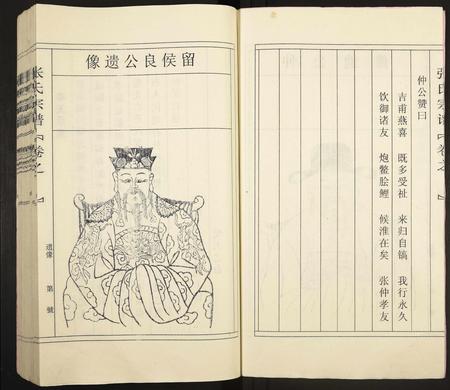 仲公赞曰
吉甫燕喜　既多受祉　来归自镐　我行永久
饮御诸友　炮鳖脍鲤　候淮在矣　张仲孝友
张氏宗谱【卷之　】
像遗公良侯留
张氏宗谱【卷之　】
遗像　第　號